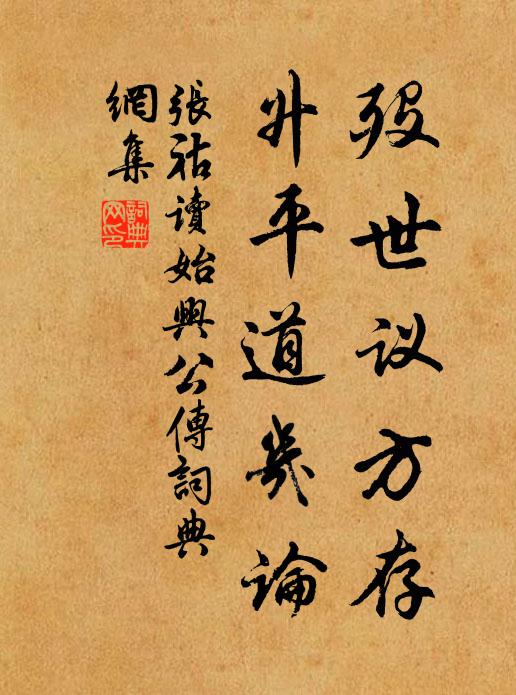 殁世议方存
升平道几论
張祜讀始興公傳詞典
網集
詞典
网印